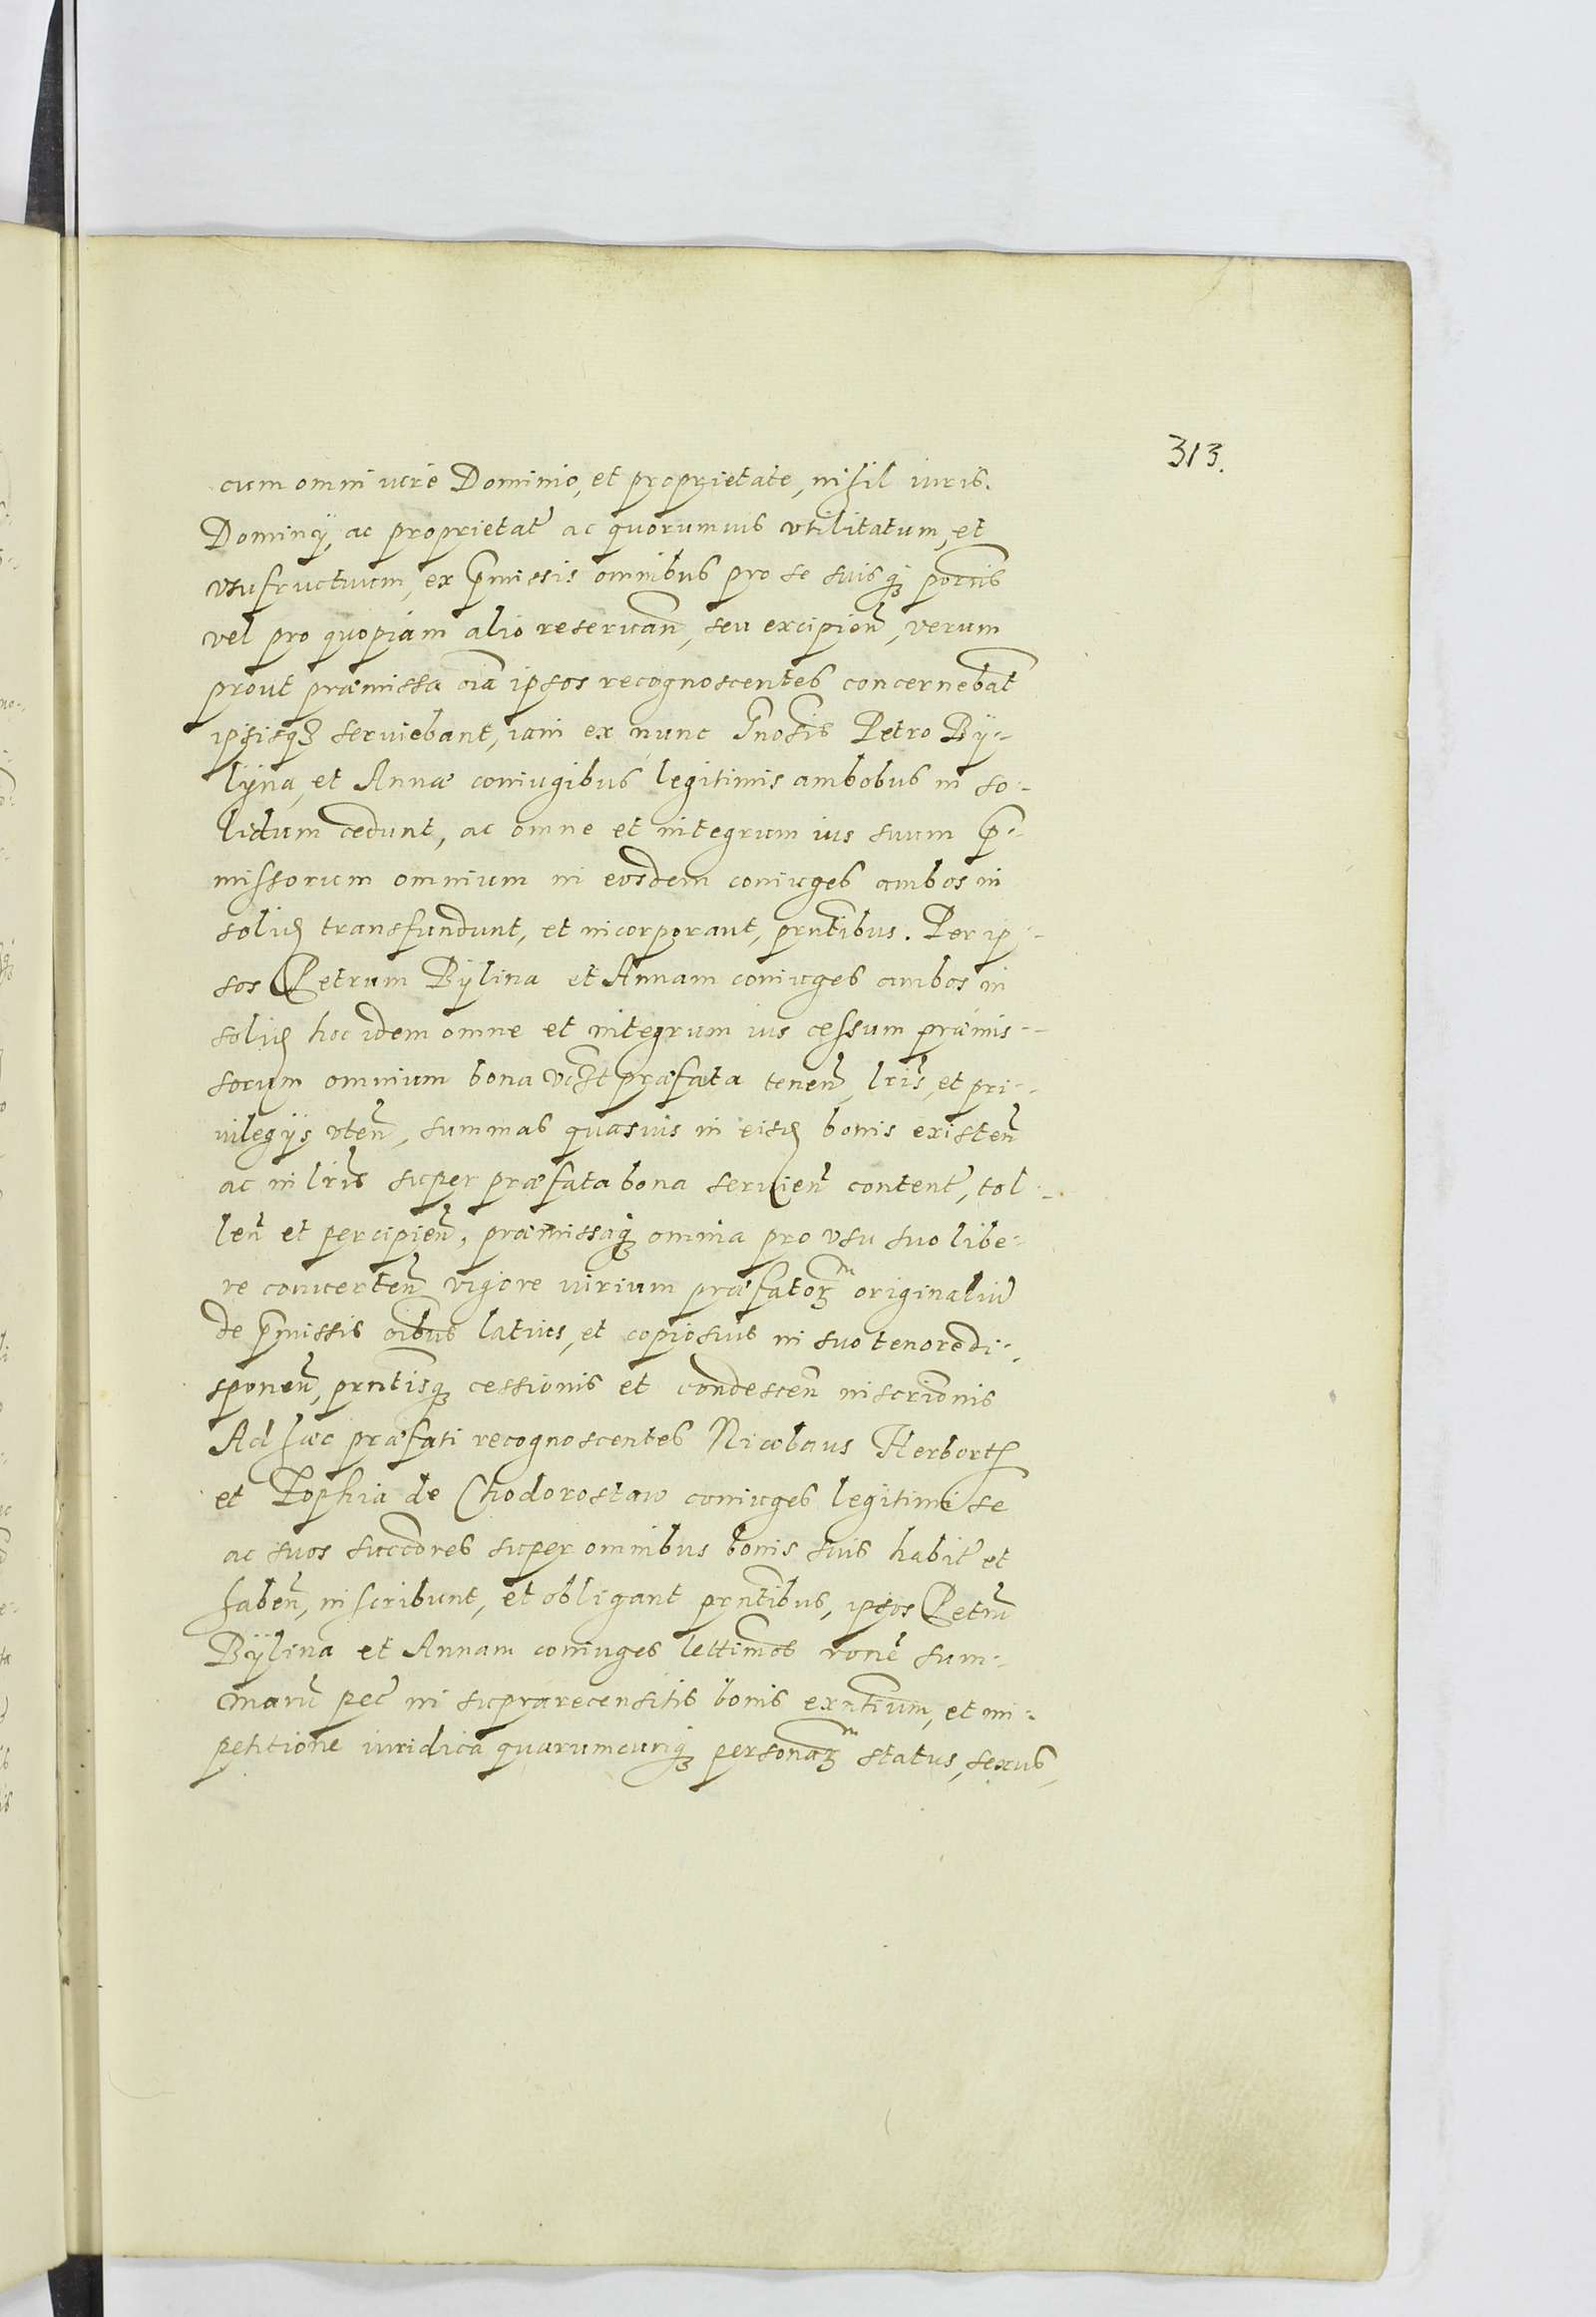 313.
cum omni iure Dominio, et proprietate, nihil iuris.
Dominÿ, ac proprietat~ ac quorumvis vtilitatum, et
vsufructuum, ex p̃missis omnibus pro se suisq₃ poct̃ris
vel pro quopiam alio reservañ, seu excipieñ, verum
prout præmissa oĩa ipsos recognoscentes concernebãt
ipsisq₃ serviebant, iam ex nunc Gñosis Petro Bÿ-
lÿna, et Annæ coniugibus legitimis ambobus in so-
lidum cedunt, ac omne et integrum ius suum p̃-
missorum omnium in eosdem coniuges ambos in
solid transfundunt, et incorporant, prñtibus. Per ip-
sos Petrum Bÿlina et Annam coniuges ambos in
solid hoc idem omne et integrum ius cessum præmis-
sorum omnium bona vc̃ꝫt præfata teneñ, lr̃is, et pri-
vilegÿs vteñ, summas quasvis in eisd bonis existeñ
ac in lr̃is super præfata bona servieñ content~, tol-
leñ et percipieñ, præmissaq₃ omnia pro vsu suo libe-
re converteñ vigore iurium præfatoꝝ originaliũ
de p̃missis oĩbus latius, et copiosius in suo tenore di-
sponeñ, prñtisq₃ cessionis et condesceñ inscriõnis
Ad hæc præfati recognoscentes Nicolaus Herborth
et Zophia de Chodorostaw coniuges legitimi se
ac suos succõres super omnibus bonis suis habit~ et
habeñ, inscribunt, et obligant prñtibus, ipsos Petrũ
Bÿlina et Annam coniuges lettimos rõne sum-
marũ pec~ in suprarecensitis bonis exñtium, et im-
petitione iuridica quarumcunq₃ personaꝝ status, sexus,